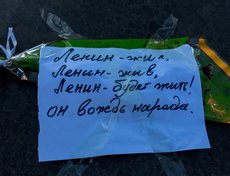 Ленин - жил,
Ленин - жив,
Ленин - будет жить!
он вождь народа.